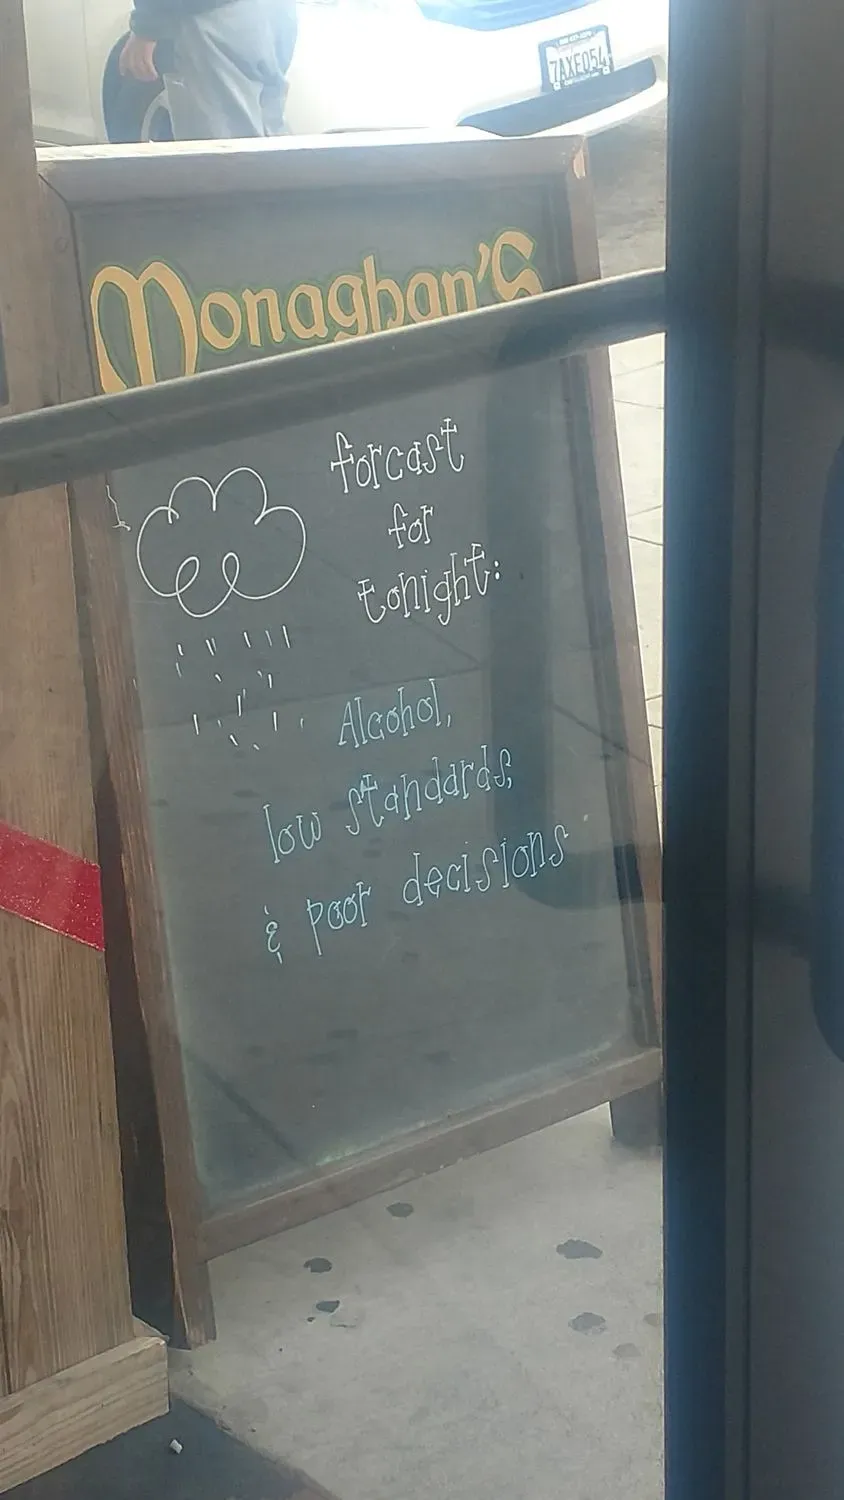 7AXF054
Monaghan's
forcast
for
tonight:
Alcohol,
low standards,
& poor decisions